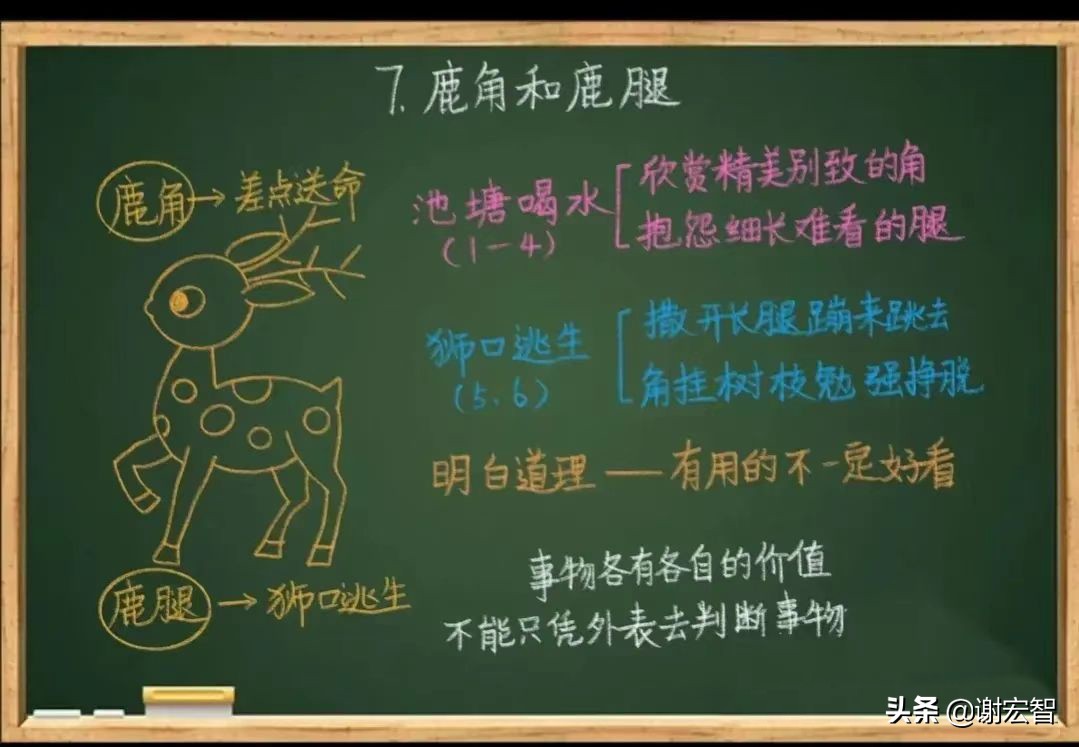 7.鹿角和鹿腿
鹿角→差点送命
池塘喝水
(1—4)
欣赏精美别致的角
抱怨细长难看的腿
狮口逃生
(5、6)
撒开长腿蹦来跳去
角挂树枝勉强挣脱
明白道理——有用的不一定好看
鹿腿→狮口逃生
事物各有各自的价值
不能只凭外表去判断事物
头条 @谢宏智